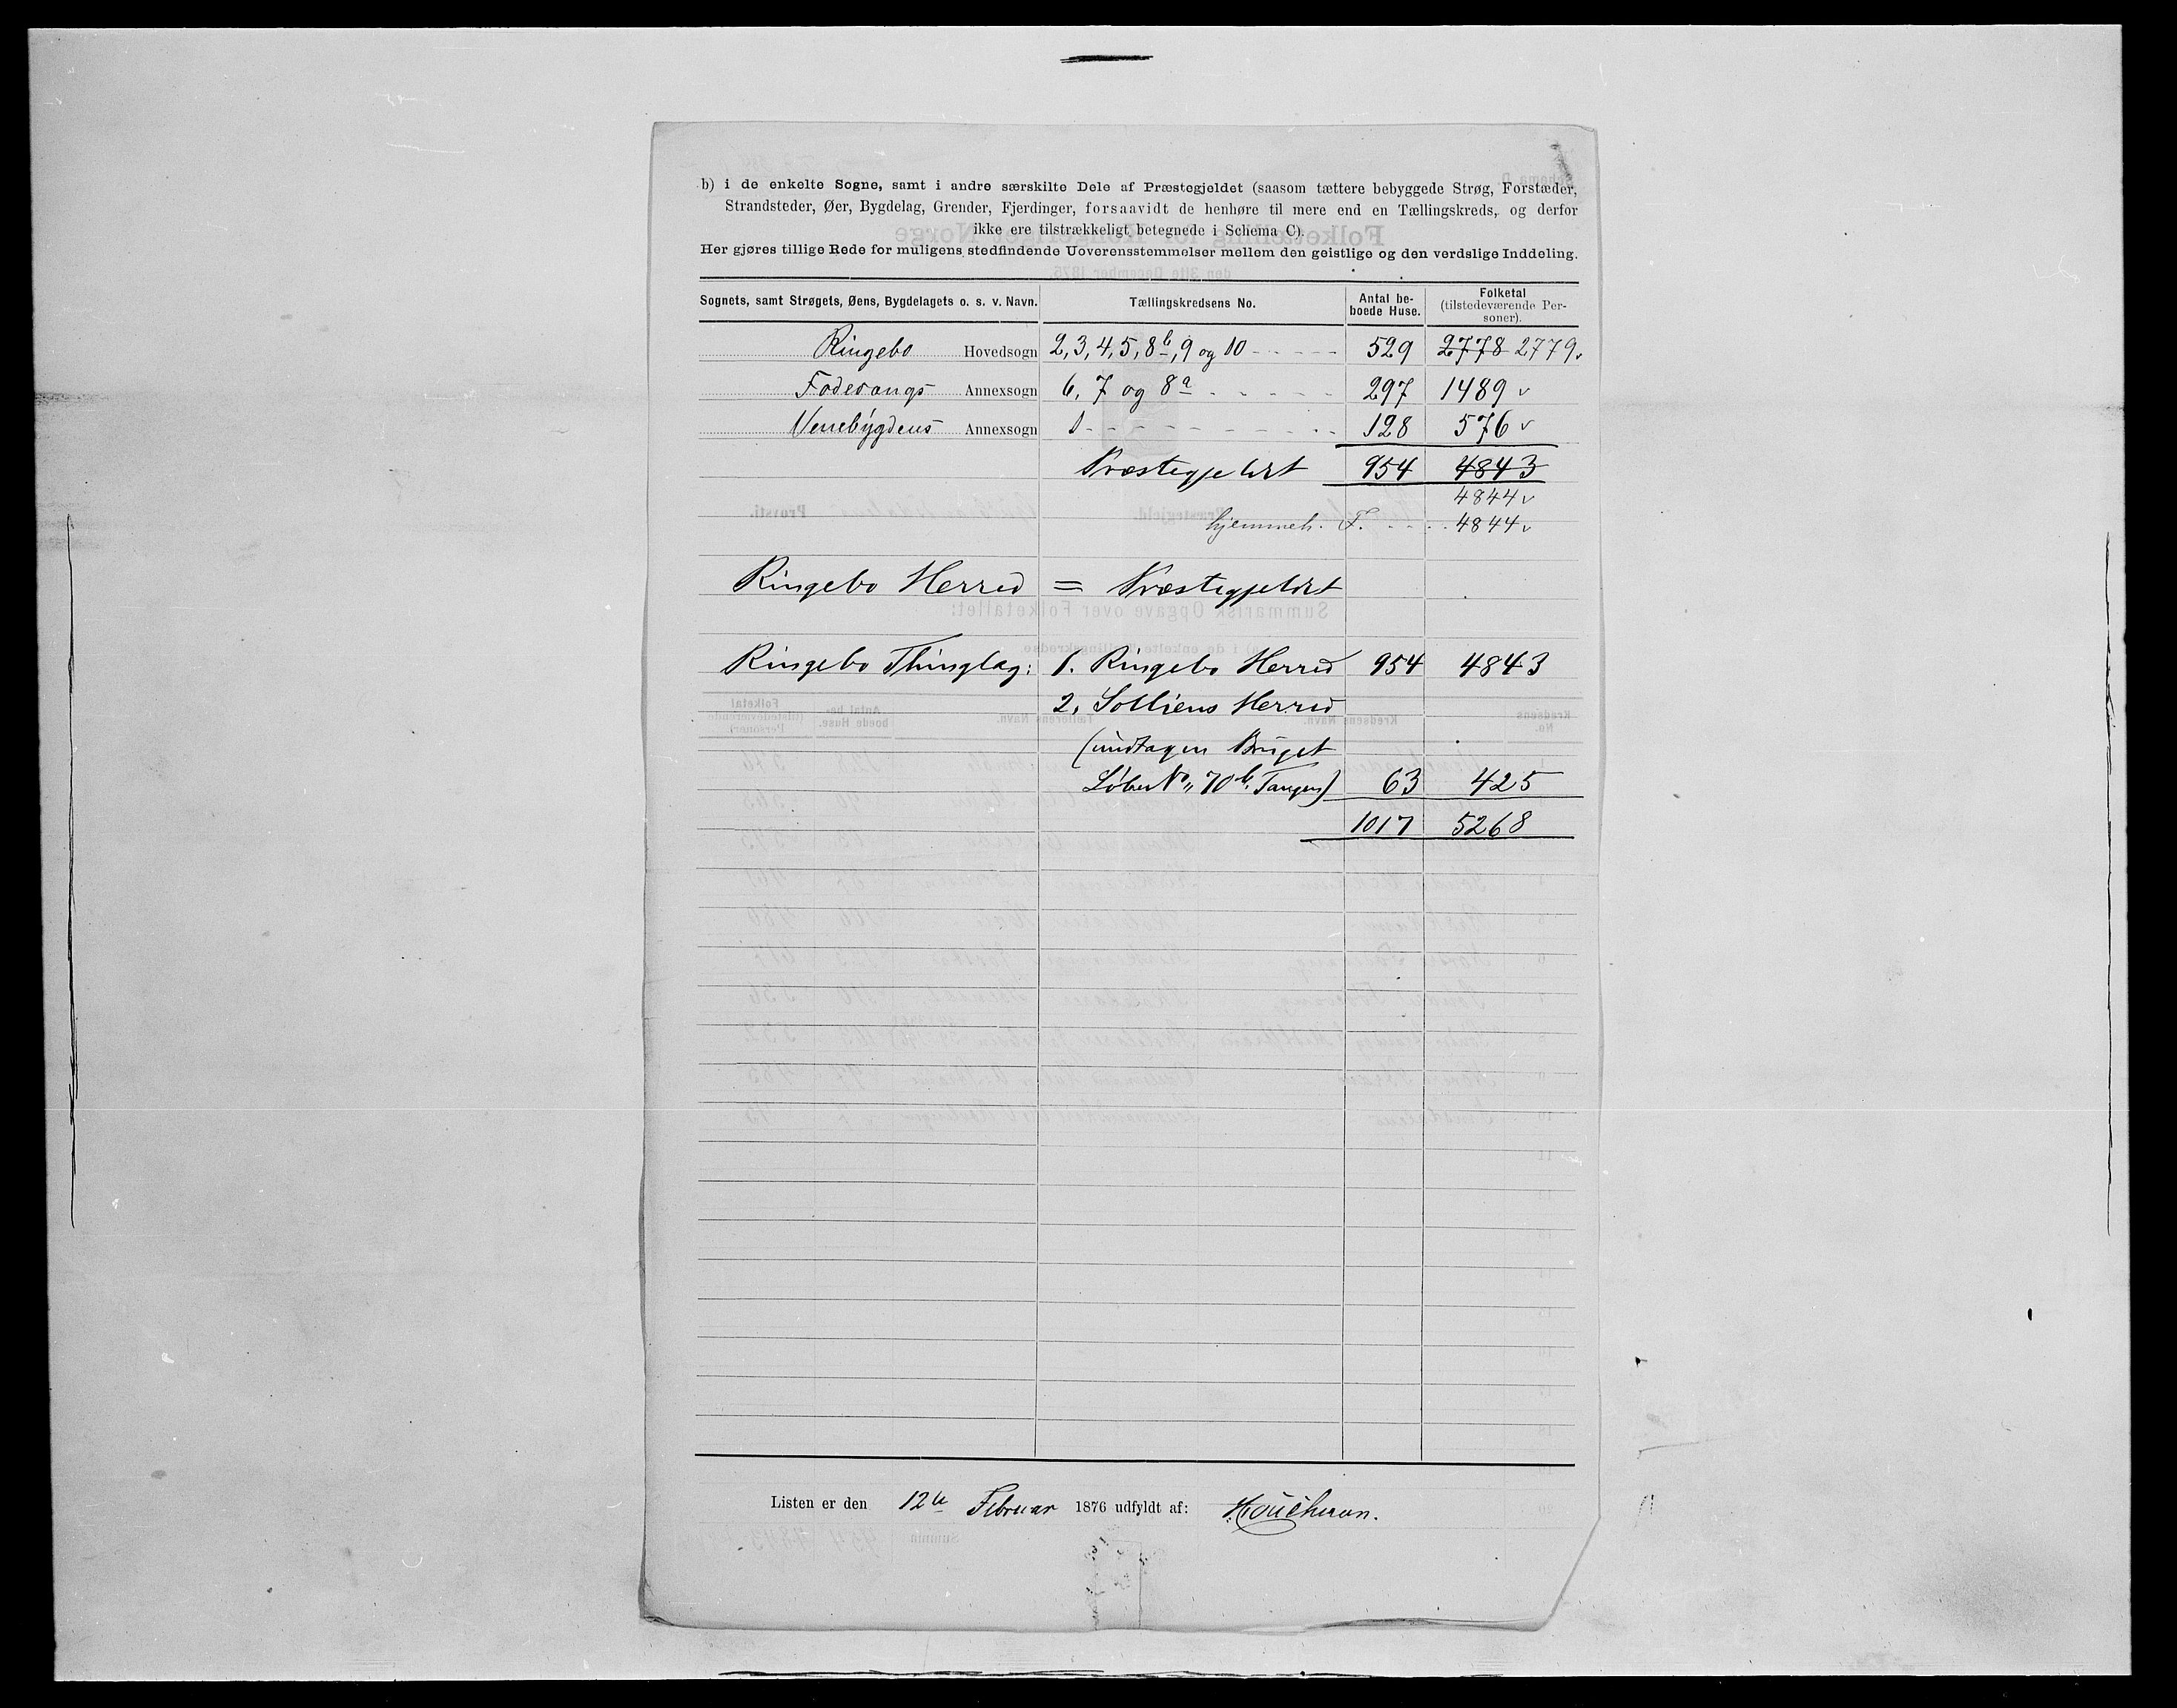 b) i de enkelte Sogne, samt i andre særskilte Dele af Præstegjeldet (saasom tættere bebyggede Strøg, Forstæder,
Strandsteder, Øer, Bygdelag, Grender, Fjerdinger, forsaavidt de henhøre til mere end en Tællingskreds, og derfor
ikke ere tilstrækkeligt betegnede i Schema C).
Her gjøres tillige Rede for muligens stedfindende Uoverensstemmelser mellem den geistlige og den verdslige Inddeling.
Sognets, samt Strøgets, Øens, Bygdelagets o. s. v. Navn. Tællingskredsens No. Antal beboede Huse. Folketal (tilstedeværende Personer).
Ringebo Hovedsogn 2, 3, 4, 5, 8b, 9 og 10 529 2778 2779
Fodevangs Annexsogn 6, 7 og 8a 297 1489
Venebygdens Annexsogn 1 128 576
Præstegjeldet 954 4843
4844
hjemmeh. F. 4844
Ringebo Herred = Præstegjeldet
Ringebo Thinglag: 1. Ringebo Herred 954 4843
2. Solliens Herred
(undtagen Bruget
Løbe No. 70b, Tangen) 63 425
1017 5268
Listen er den 12te Februar 1876 udfyldt af: